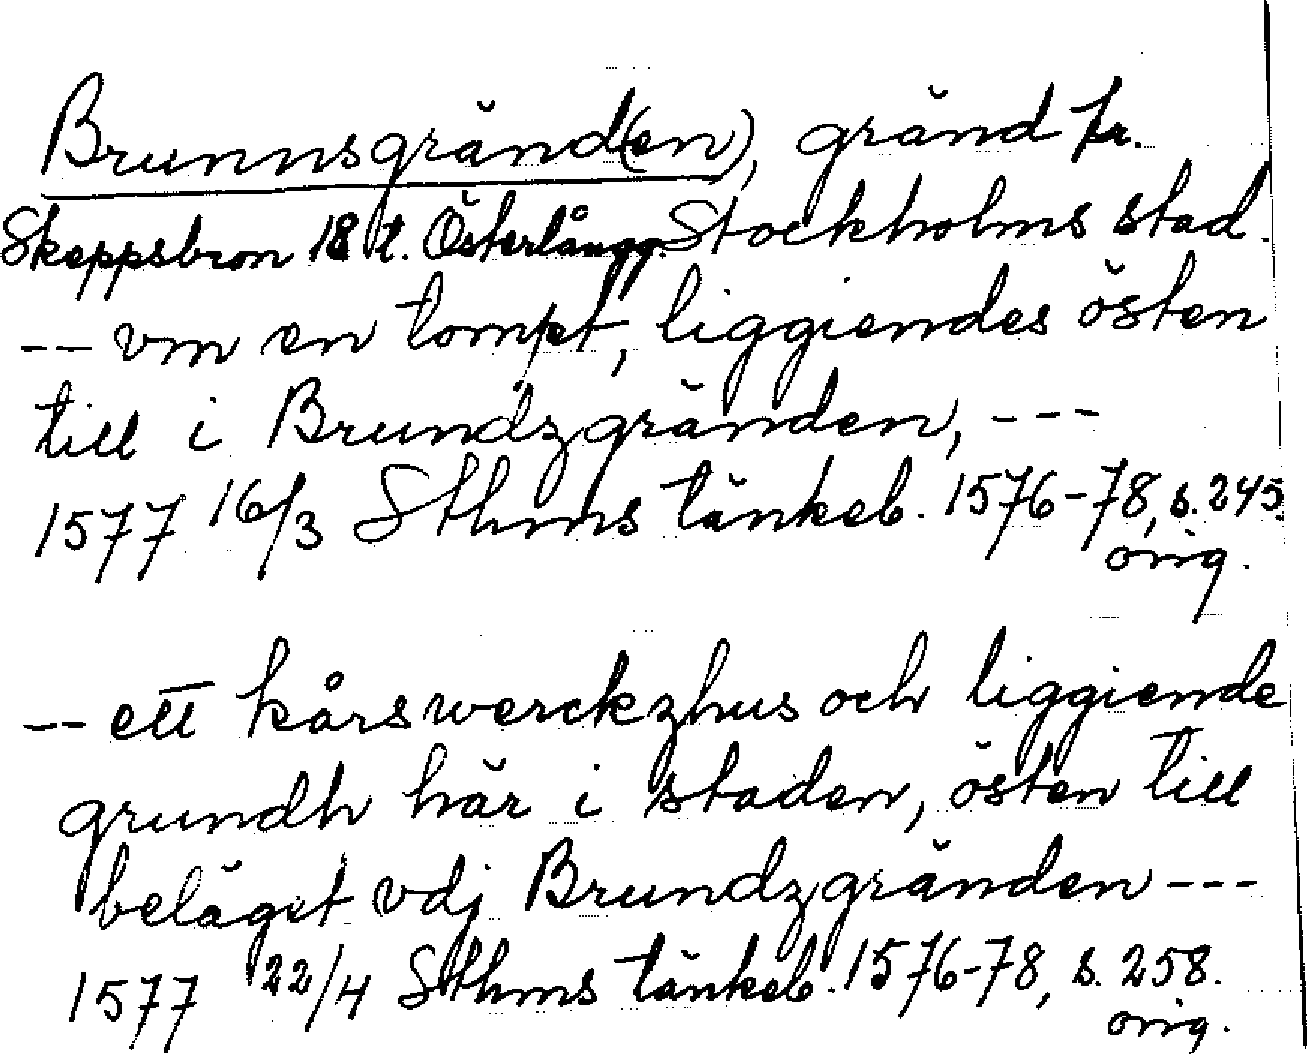 Brunnsgränd(en), gränd fr.
Skeppsbron 18 t. Österlångg. Stockholms stad.
-- vm en tompt, liggiendes östen
till i Brundzgränden, ---
1577 16/3 Sthms tänkeb. 1576-78, s. 245.
orig.
-- ett kårswerckzhus och liggiende
grundh här i staden, östen till
beläget vdj Brundzgränden ---
1577 22/4 Sthms tänkeb. 1576-78, s. 258.
orig.